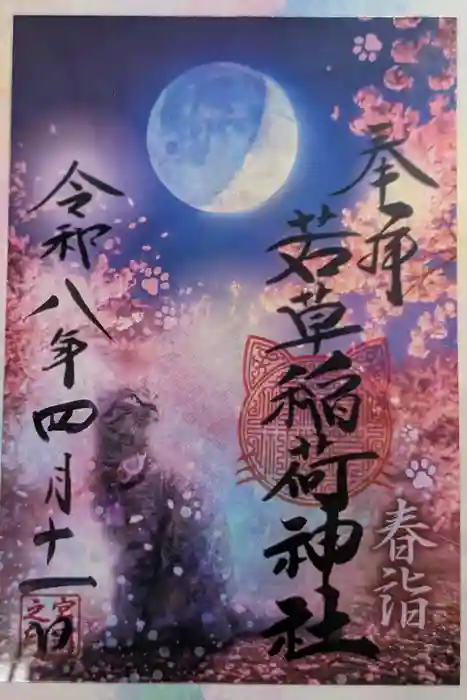 奉拝
若草稲荷神社
春詣
令和八年四月十一日